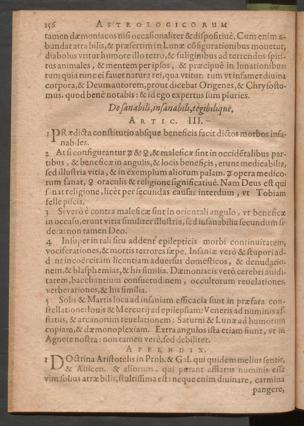 156 ASTROLOGICORUM
tamen dæmoniacos nisi occasionaliter & dispositiuè. Cum enim a-
bundat atra bilis, & præsertim in Lunæ cõfigurationibus mouetur,
diabolus vtitur humore illo tetro, & fuliginibus ad terrendos spiri-
tus animales, & mentem per ipsos, & præcipuè in lunationibus
tum quia tunc ei fauet natura rei, qua vtitur. tum vt infamet diuina
corpora, & Deum autorem, prout dicebat Origenes, & Chrysosto-
mus. quod benè notabis: & id ego expertus sum pluries.
De sanabili, insanabili, tegibilique.
ARTIC. III.
1 PRædicta constitutio absque beneficis facit dictos morbos insa-
nabiles.
2 At si configurantur ♃ & ♀, & maleficæ sint in occidẽtalibus par-
tibus, & beneficæ in angulis, & locis beneficis, erunt medicabilia,
sed illustria vitia, & in exemplum aliorum palam. ♃ opera medico-
rum sanat, ♀ oraculis & religione significatiuè. Nam Deus est qui
sanat religione, licèt per secundas causas interdum, vt Tobiam
felle piscis.
3 Si verò è contra maleficæ sint in orientali angulo, vt beneficæ
in occasu, erunt vitia similiter illustria, sed insanabilia secundum si-
dera: non tamen Deo.
4 Insuper in tali situ addent epilepticis morbi continuitatem,
vociferationes, & mortis terrores sæpe. Insaniæ verò & stupori ad-
dunt incoërcitam licentiam aduersus domesticos, & denudatio-
nem, & blasphemias, & his similia. Dæmoniacis verò cerebri auidi-
tatem, bacchantium consuetudinem, occultorum reuelationes
verberationes, & his similia.
5 Solis & Martis loca ad insaniam efficacia sunt in præfata con-
stellatione: Iouis & Mercurij ad epilepsiam: Veneris ad numinis af-
flatus, & arcanorum reuelationem: Saturni & Lunæ ad humorum
copiam, & dæmonoplexiam. Extra angulos ista etiam fiunt, vt in
Agnete nostra: non tamen verò, sed debiliter.
APPENDIX.
1 DOctrina Aristotelis in Prob. & Gal. qui quidem melius sentit,
& Auicen. & aliorum, qui putant afflatus numinis esse
vim solius atræ bilis, stultissima est: neque enim diuinare, carmina
pangere,